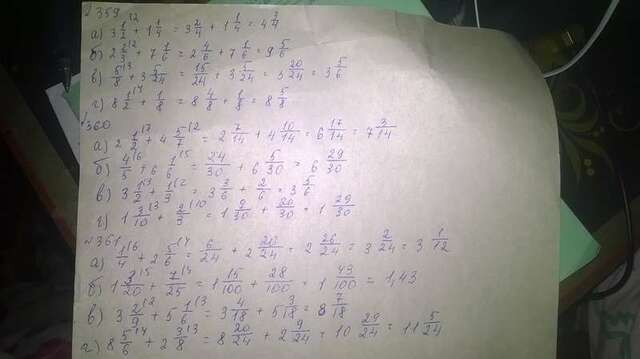 №359
а) 3 1/2 + 1 1/4 = 3 2/4 + 1 1/4 = 4 3/4
б) 2 2/3 + 7 1/6 = 2 4/6 + 7 1/6 = 9 5/6
в) 5/8 + 3 5/24 = 15/24 + 3 5/24 = 3 20/24 = 3 5/6
г) 8 1/2 + 1/8 = 8 4/8 + 1/8 = 8 5/8
№360
а) 2 1/2 + 4 5/7 = 2 7/14 + 4 10/14 = 6 17/14 = 7 3/14
б) 4/5 + 6 1/6 = 24/30 + 6 5/30 = 6 29/30
в) 3 1/2 + 1/3 = 3 3/6 + 2/6 = 3 5/6
г) 1 3/10 + 2/3 = 1 9/30 + 20/30 = 1 29/30
№361
а) 1/4 + 2 5/6 = 6/24 + 2 20/24 = 2 26/24 = 3 2/24 = 3 1/12
б) 1 3/20 + 7/25 = 1 15/100 + 28/100 = 1 43/100 = 1,43
в) 3 2/9 + 5 1/6 = 3 4/18 + 5 3/18 = 8 7/18
г) 8 5/6 + 2 3/8 = 8 20/24 + 2 9/24 = 10 29/24 = 11 5/24